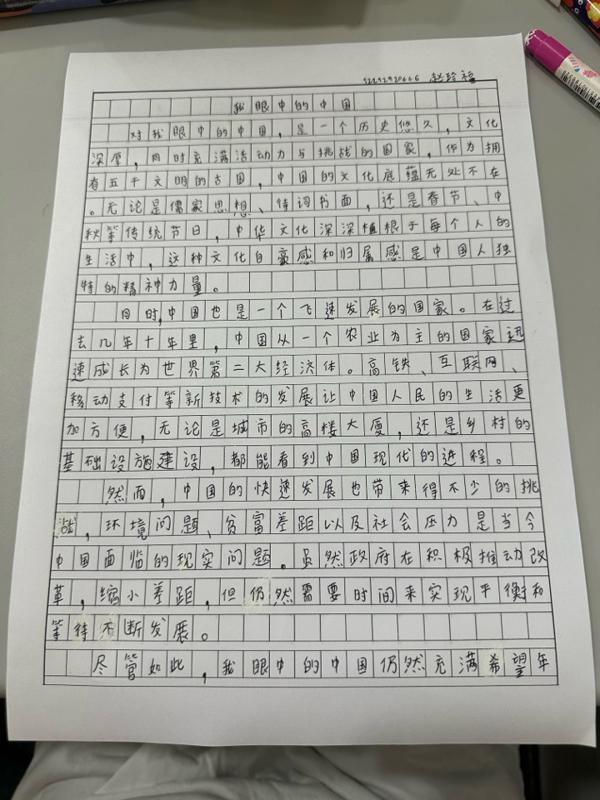 922929206​66 赵玲福
我眼中的中国
对我眼中的中国,是一个历史悠久,文化
深厚,同时充满活动力与挑战的国家,作为拥
有五千文明的古国,中国的文化底蕴无处不在
。无论是儒家思想、诗词书画,还是春节、中
秋等传统节日,中华文化深深植根于每个人的
生活中,这种文化自豪感和归属感是中国人独
特的精神力量。
同时,中国也是一个飞速发展的国家。在过
去几年十年里,中国从一个农业为主的国家迅
速成长为世界第二大经济体。高铁、互联网、
移动支付等新技术的发展让中国人民的生活更
加方便,无论是城市的高楼大厦,还是乡村的
基础设施建设,都能看到中国现代的进程。
然而,中国的快速发展也带来得不少的挑
战,环境问题、贫富差距以及社会压力是当今
中国面临的现实问题。虽然政府在积极推动改
革,缩小差距,但仍然需要时间来实现平衡和
等待不断发展。
尽管如此,我眼中的中国仍然充满希望年